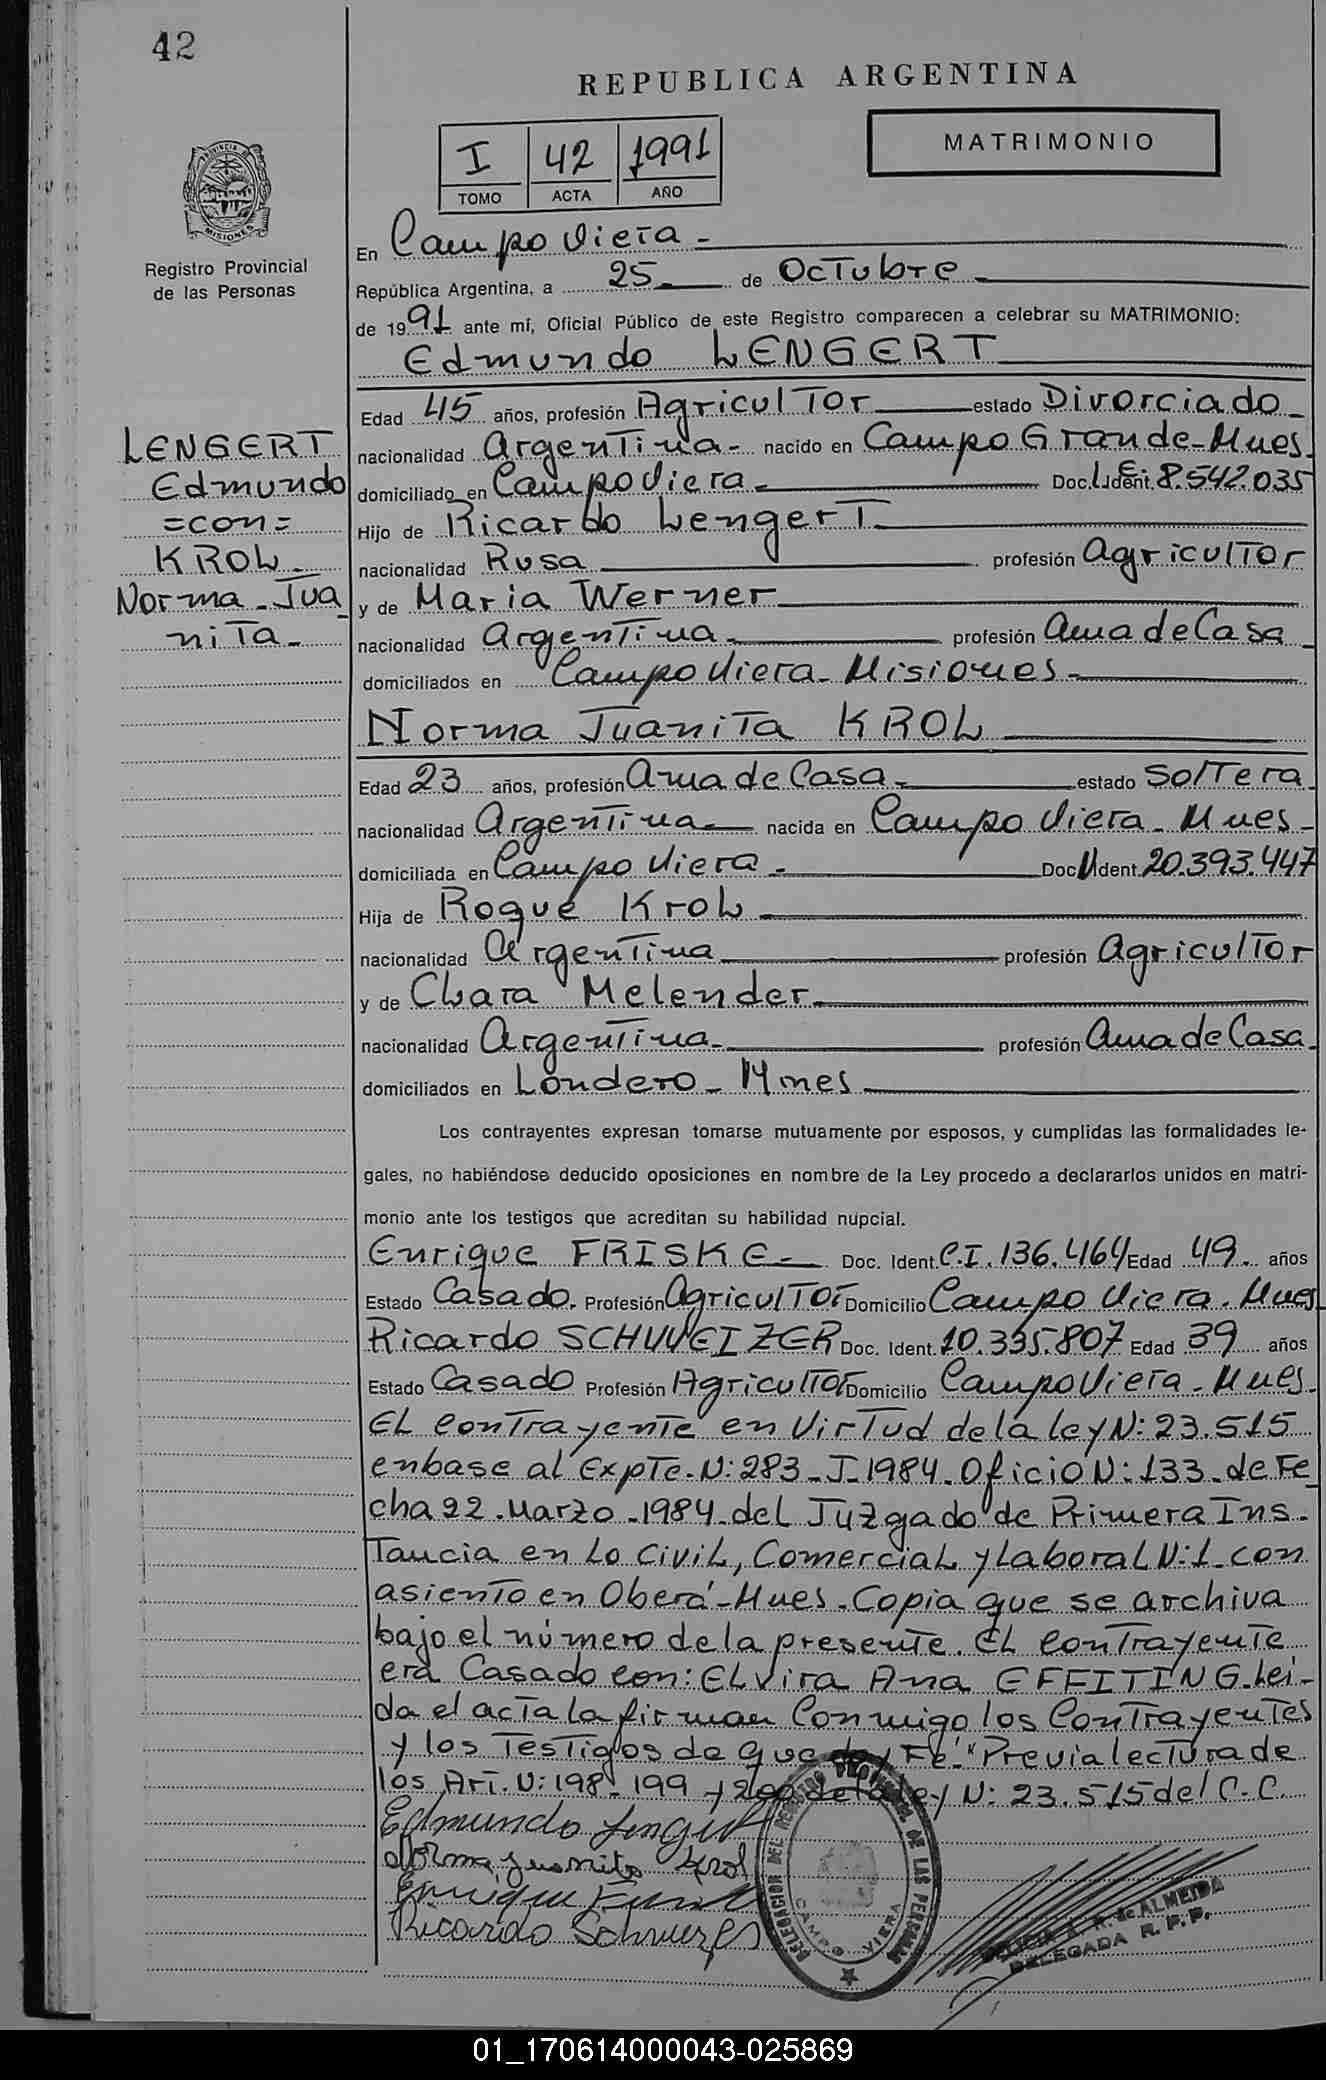 42
REPUBLICA ARGENTINA
I 42 1991
TOMO ACTA AÑO
MATRIMONIO
PROVINCIA DE
MISIONES
Registro Provincial
de las Personas
En Campo Viera -
República Argentina, a 25 - de Octubre -
de 1991 ante mí, Oficial Público de este Registro comparecen a celebrar su MATRIMONIO:
Edmundo LENGERT
Edad 45 años, profesión Agricultor estado Divorciado -
nacionalidad Argentina - nacido en Campo Grande - Mnes.
domiciliado en Campo Viera - Doc. Ident. L.E. 8.542.035
Hijo de Ricardo Lengert
nacionalidad Rusa profesión Agricultor
y de Maria Werner
nacionalidad Argentina - profesión Ama de Casa -
domiciliados en Campo Viera - Misiones -
LENGERT
Edmundo
=con=
KROL -
Norma - Jua
nita -
Norma Juanita KROL
Edad 23 años, profesión Ama de Casa - estado Soltera
nacionalidad Argentina - nacida en Campo Viera - Mnes -
domiciliada en Campo Viera - Doc. Ident. 20.393.447
Hija de Roque Krol
nacionalidad Argentina profesión Agricultor
y de Clara Melender
nacionalidad Argentina - profesión Ama de Casa -
domiciliados en Londero - Mnes
Los contrayentes expresan tomarse mutuamente por esposos, y cumplidas las formalidades le-
gales, no habiéndose deducido oposiciones en nombre de la Ley procedo a declararlos unidos en matri-
monio ante los testigos que acreditan su habilidad nupcial.
Enrique FRISKE - Doc. Ident. C.I. 136.464 Edad 49 - años
Estado Casado. Profesión Agricultor Domicilio Campo Viera - Mnes
Ricardo SCHWEIZER Doc. Ident. 10.335.807 Edad 39 años
Estado Casado Profesión Agricultor Domicilio Campo Viera - Mnes.
El contrayente en virtud de la ley N: 23.515
enbase al Expte. N: 283 - J - 1984. Oficio N: 133 - de Fe
cha 22 - Marzo - 1984 - del Juzgado de Primera Ins -
tancia en lo Civil, Comercial y Laboral N: 1 - con
asiento en Oberá - Mnes. Copia que se archiva
bajo el número de la presente. El contrayente
era Casado con: Elvira Ana EFFITING. Lei -
da el acta la firman Conmigo los Contrayentes
y los Testigos de que doy Fe. "Previa lectura de
los Art. N: 198 - 199 y 200 de la ley N: 23.515 del C.C.
Edmundo Lengert
Norma Juanita Krol
Enrique
Ricardo
DELEGACION DEL REGISTRO PROVINCIAL DE LAS PERSONAS
CAMPO VIERA
de ALMEIDA
DELEGADA R. P. P.
01_170614000043-025869